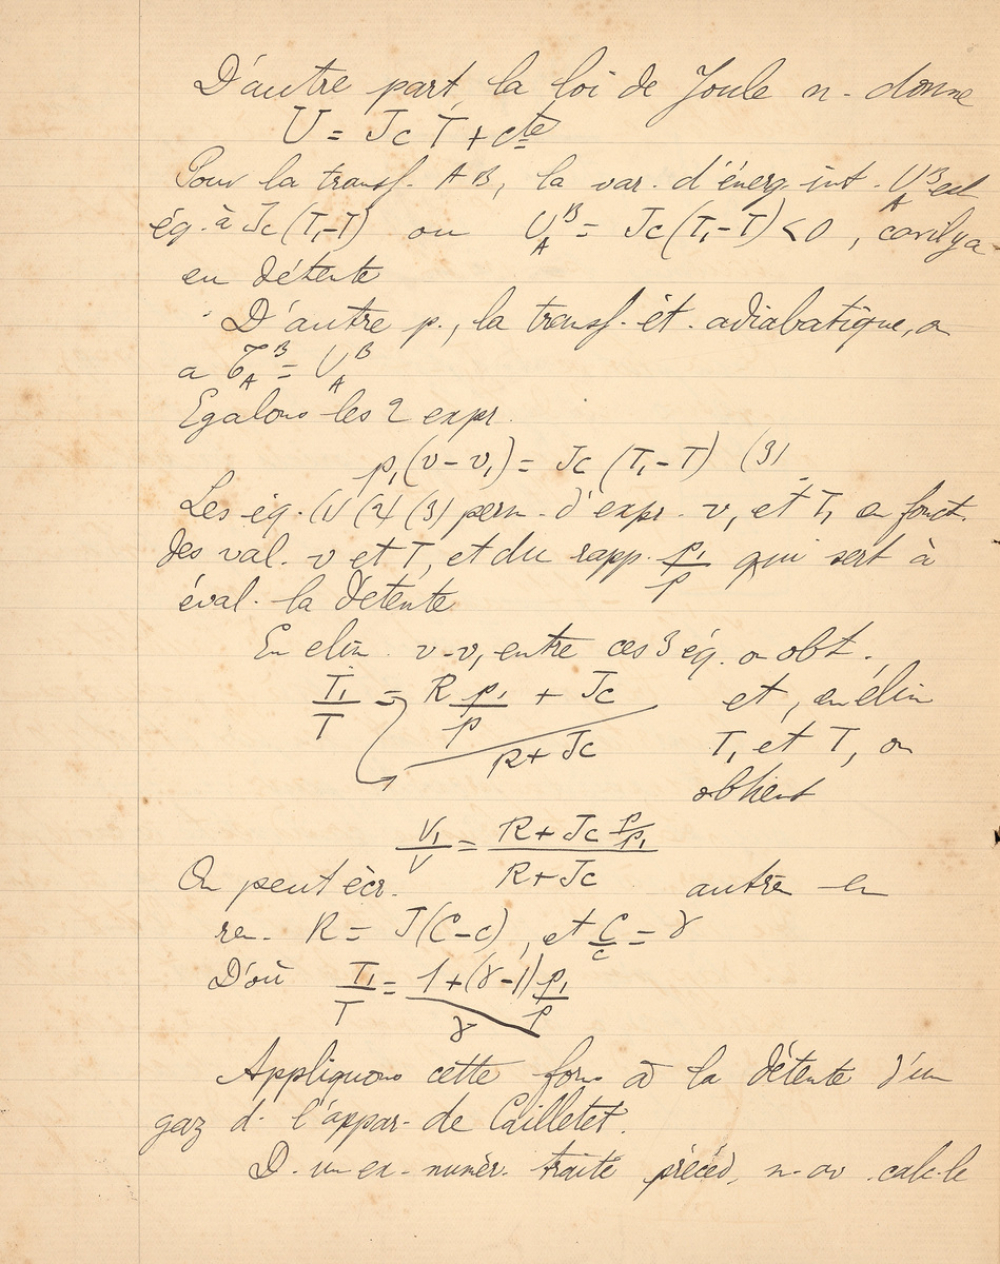 D'autre part, la loi de Joule n. donne
U = Jc T + cte
Pour la transf. AB, la var. d'énerg. int. U_A^B est
ég. à Jc (T₁-T) ou U_A^B = Jc (T₁-T) < 0, car il y a
eu détente
D'autre p., la transf. ét. adiabatique, on
a 𝒯_A^B = U_A^B
Egalons les 2 expr.
p₁(v-v₁) = Jc (T₁-T) (3)
Les éq. (1) (2) (3) perm. d'expr. v₁ et T₁ en fonct.
des val. v et T, et du rapp. p₁/p qui sert à
éval. la détente
En elim. v-v₁ entre ces 3 éq. on obt.
T₁/T = (R p₁/p + Jc)/(R + Jc) et, en élim
T₁ et T, on
obtient
V₁/V = (R + Jc p/p₁)/(R + Jc)
On peut écr. autre en
re. R = J(C-c), et C/c = γ
D'où T₁/T = (1+(γ-1) p₁/p)/γ
Appliquons cette form. à la détente d'un
gaz d. l'appar. de Cailletet.
D. un ex. numér. traité précéd. n. av. calc. le